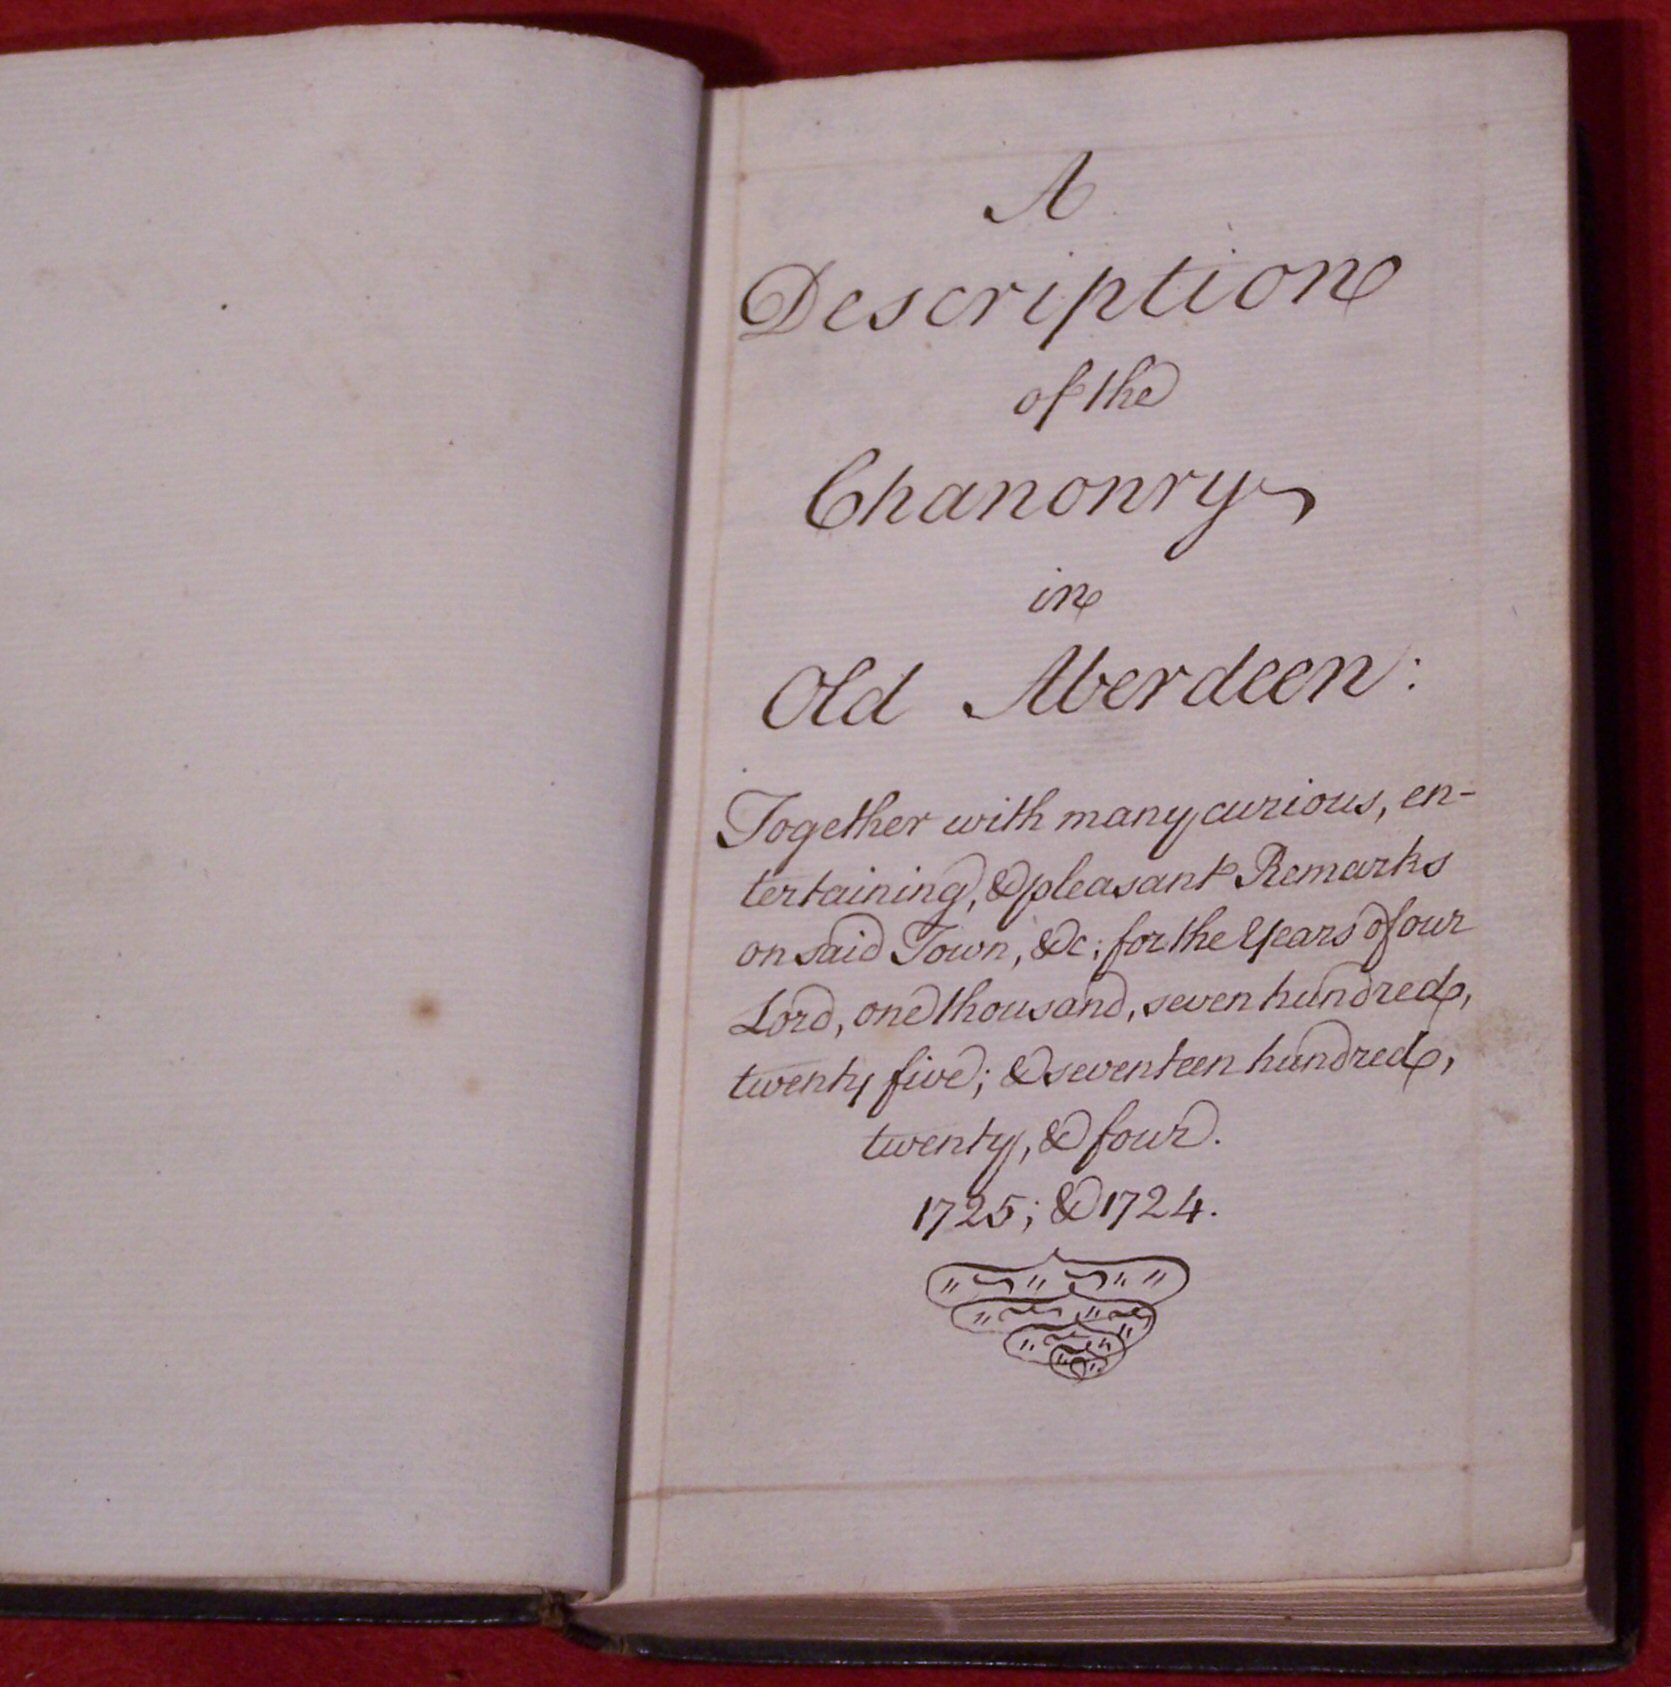 A
Description
of the
Chanonry
in
Old Aberdeen:
Together with many curious, en-
tertaining, & pleasant Remarks
on said Town, &c; for the Years of our
Lord, one thousand, seven hundred,
twenty five; & seventeen hundred,
twenty, & four.
1725; & 1724.